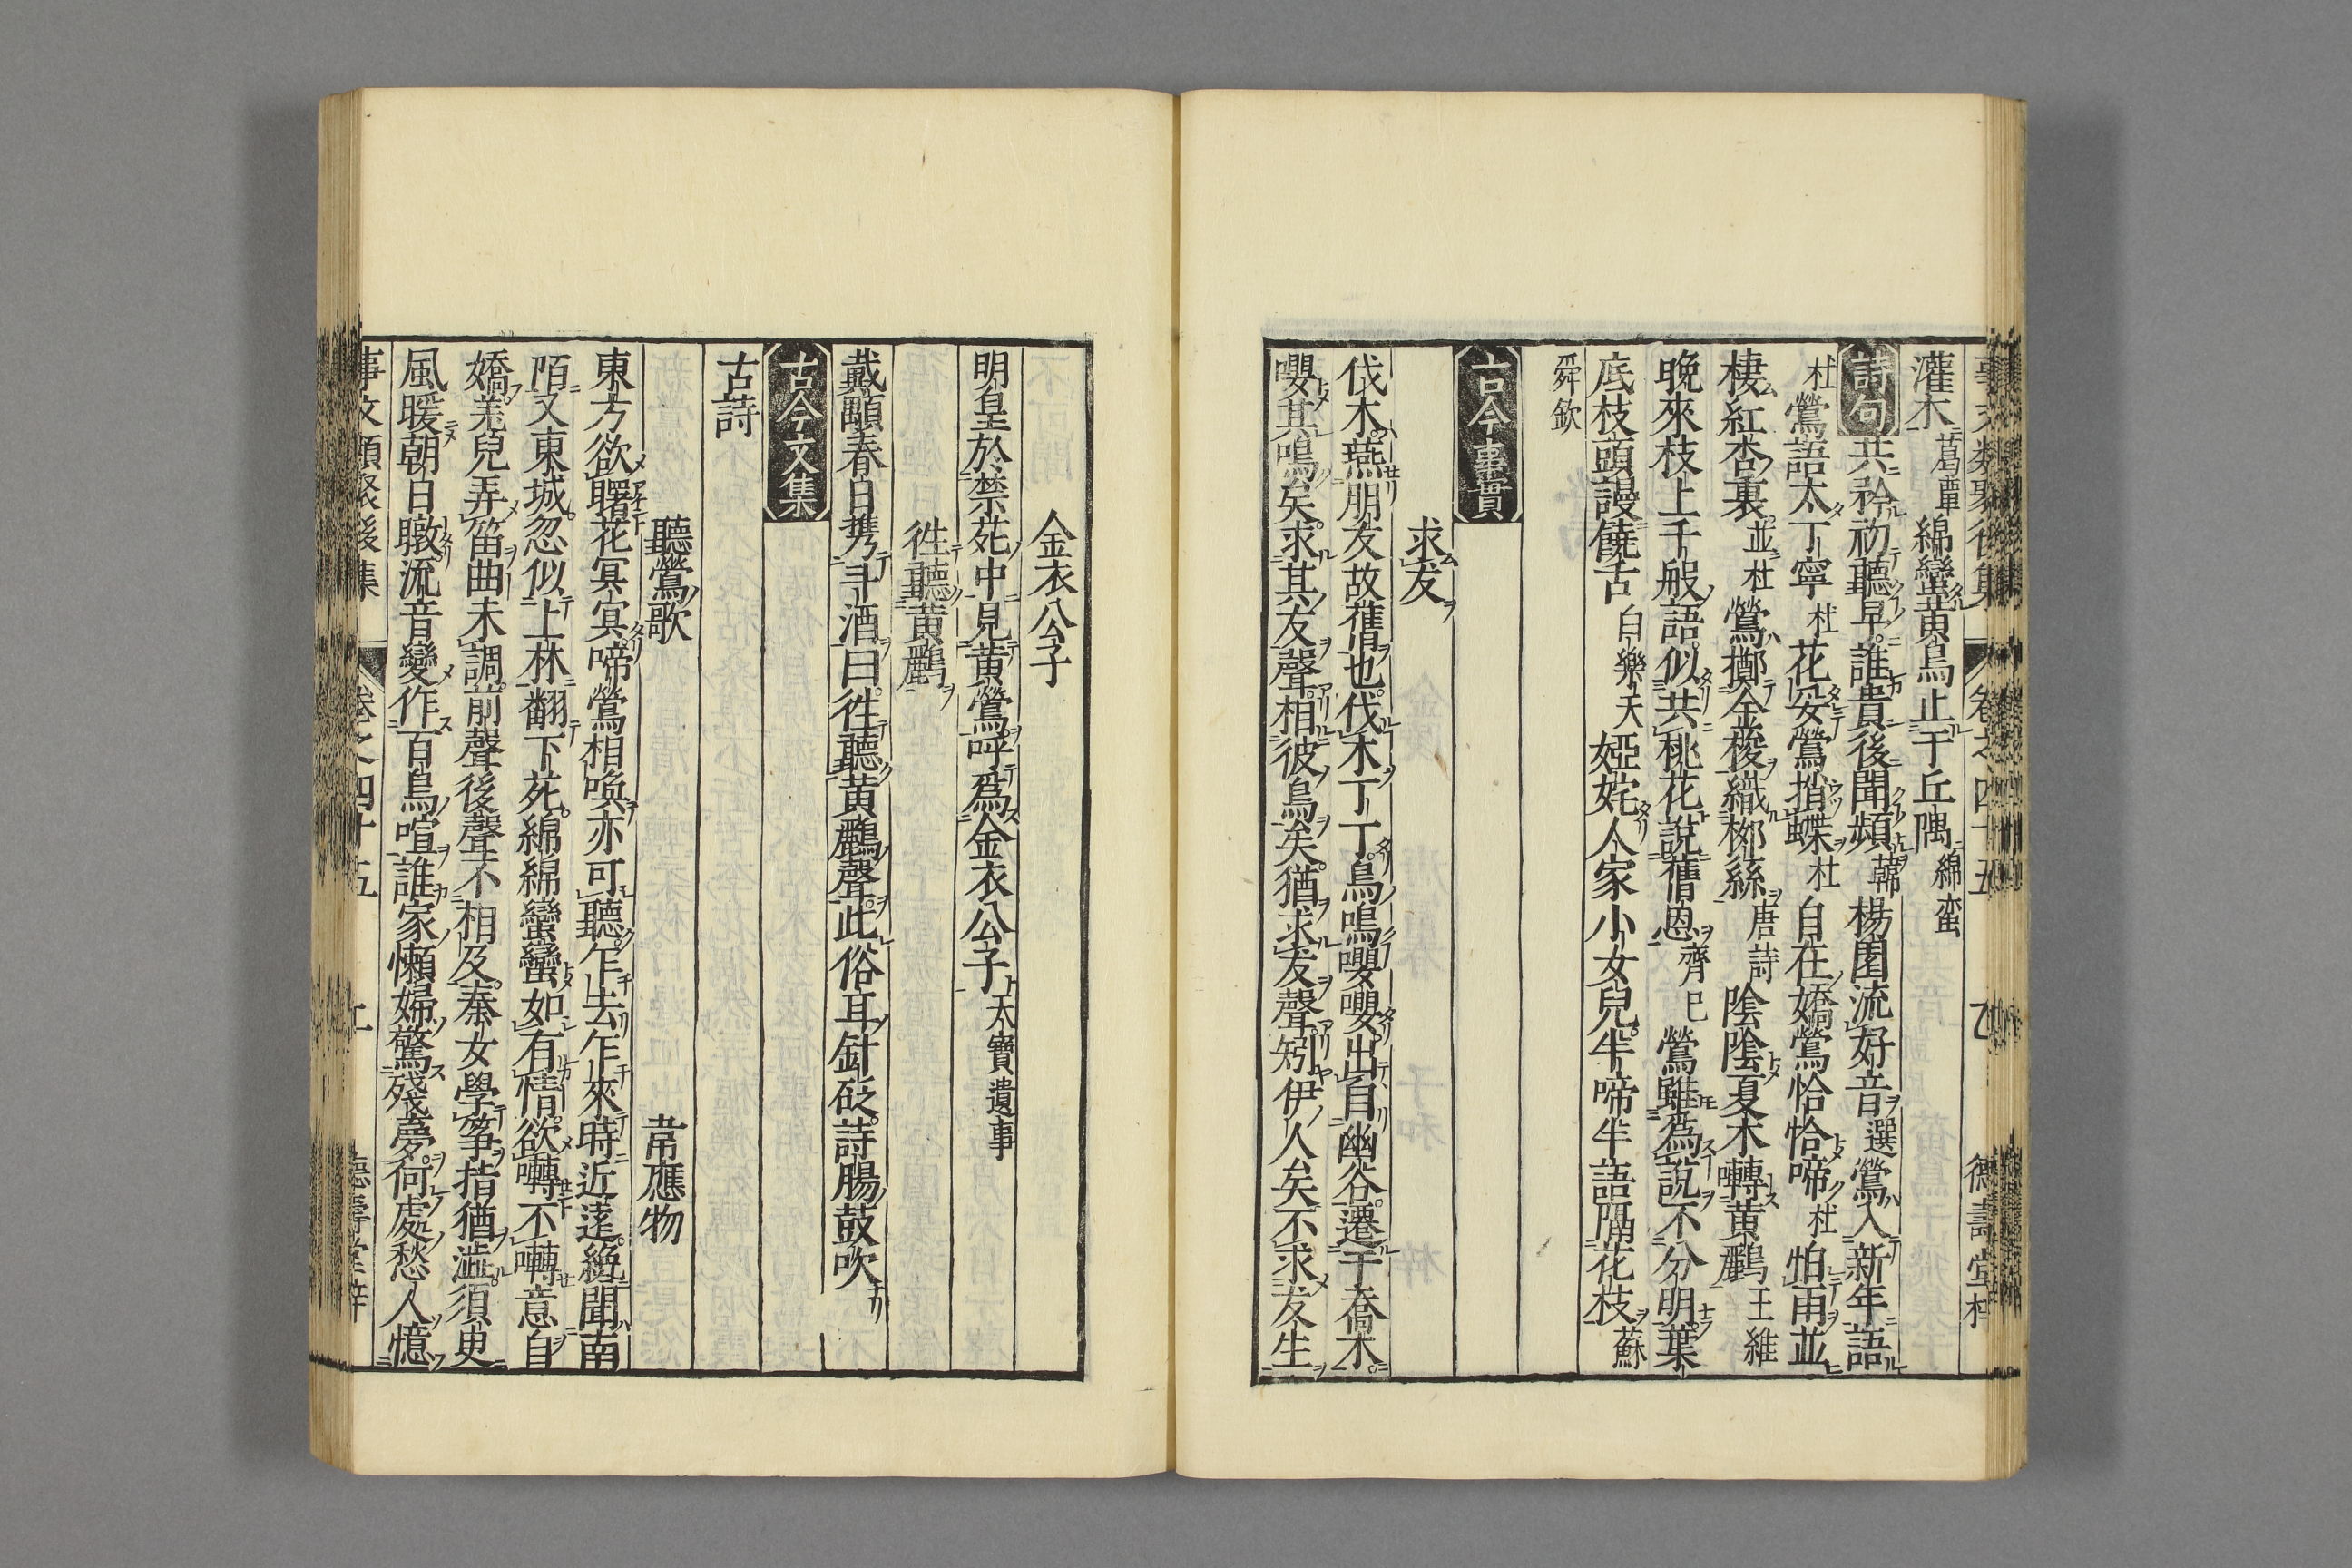 灌木葛覃綿蠻黄鳥止于丘隅綿蛮
詩句共矜初聽早誰貴後聞頻韓楊園流好音選鶯入新年語
杜鶯語太丁寧杜花妥鶯捎蝶杜自在嬌鶯恰恰啼杜怕雨並
棲紅杏裏並杜鶯擲金梭織柳絲唐詩陰陰夏木囀黄鸝王維
晩來枝上千般語似共桃花說舊恩齊己鶯雖爲說不分明葉
底枝頭謾饒舌白樂天婭姹人家小女兒半啼半語隔花枝蘇
舜欽
古今事實
求友
伐木燕朋友故舊也伐木丁丁鳥鳴嚶嚶出自幽谷遷于喬木
嚶其鳴矣求其友聲相彼鳥矣猶求友聲矧伊人矣不求友生
金衣公子
明皇於禁苑中見黄鶯呼爲金衣公子天寶遺事
徃聽黄鸝
戴顒春日携斗酒曰徃聽黄鸝聲此俗耳針砭詩腸鼓吹
古今文集
古詩
聽鶯歌 韋應物
東方欲曙花冥冥啼鶯相喚亦可聽乍去乍來時近遠繞聞南
陌又東城忽似上林翻下苑綿綿蠻蠻如有情欲囀不囀意自
嬌羌兒弄笛曲未調前聲後聲不相及秦女學筝指猶澁須臾
風暖朝日暾流音變作百鳥喧誰家懶婦驚殘夢何處愁人憶